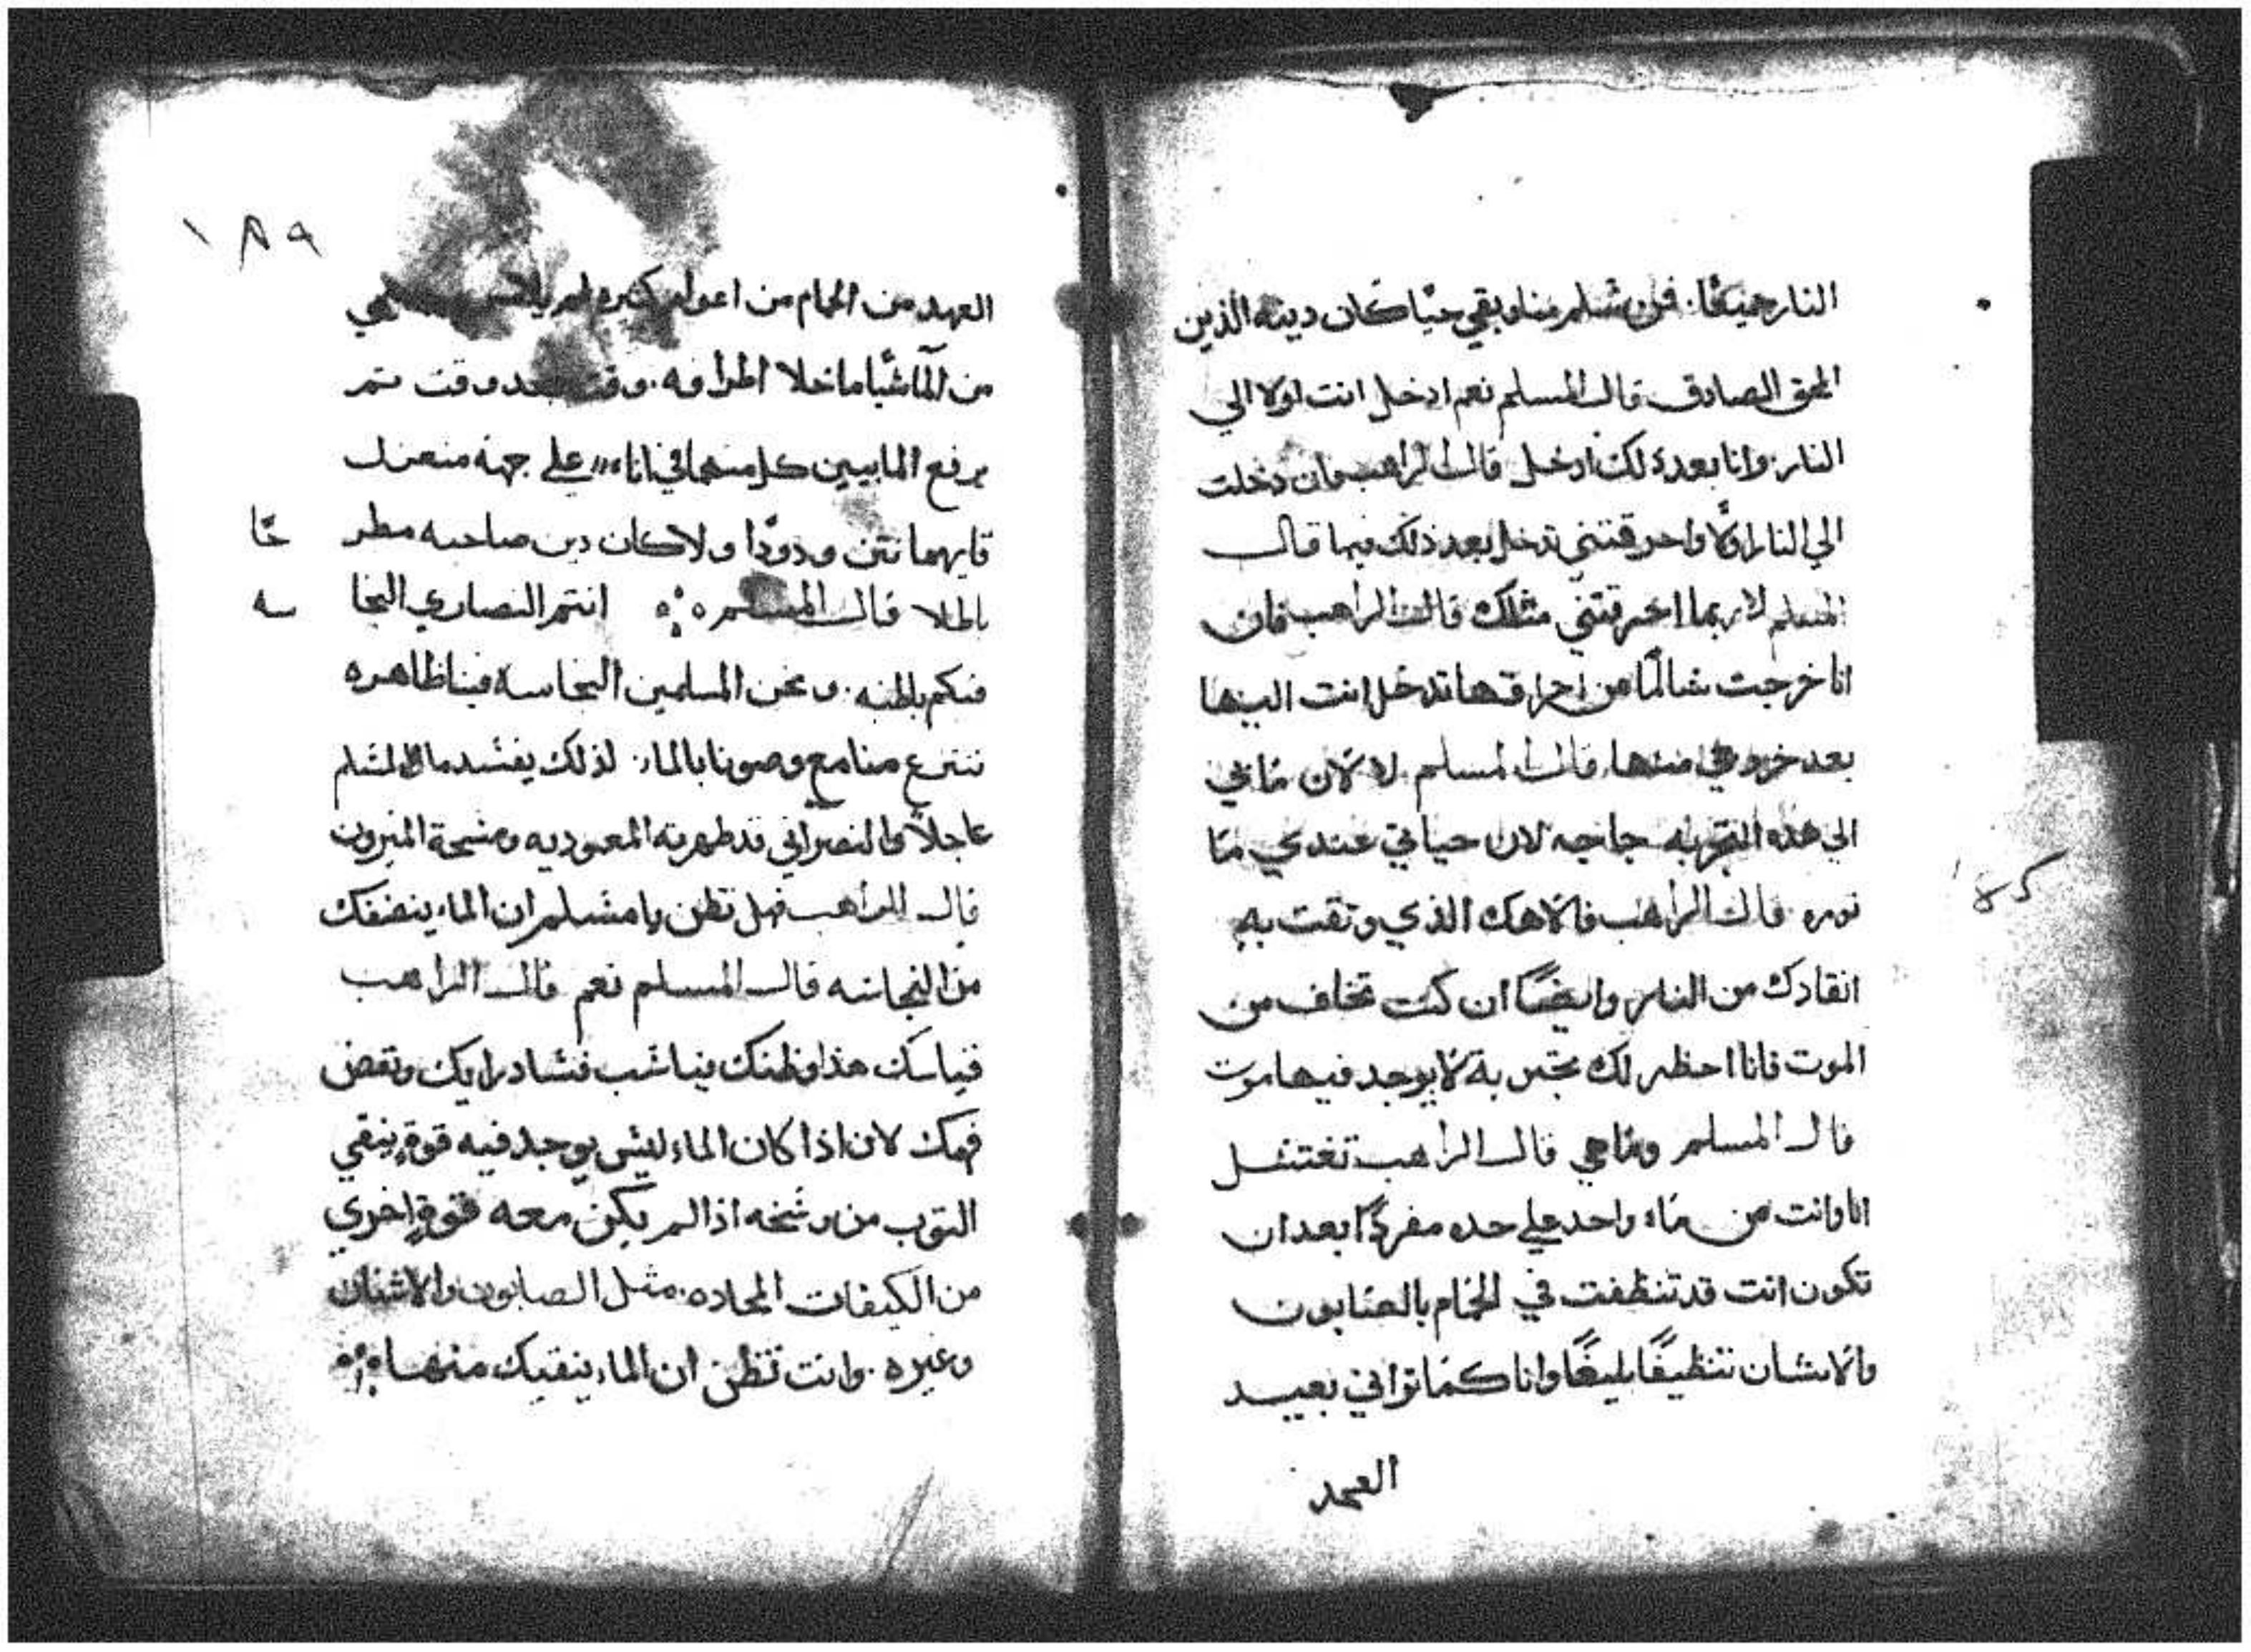 النار جميعًا. فمن سلم منا وبقي حيًا كان دينه الدين
الحق الصادق قال المسلم نعم ادخل انت اولا الي
النار وانا بعد ذلك ادخل قال الراهب فان دخلت
الي النار اولًا واحرقتني تدخل بعد ذلك فيها قال
المسلم لا ربما احرقتني مثلك قال الراهب فان
انا خرجت سالمًا من احراقها تدخل انت اليها
بعد خروجي منها قال المسلم لا لان ما بي
الي هذه التجربه حاجه لان حياتي عندي ما
قال الراهب فالاهك الذي وتقت به
انقادك من النار وايضًا ان كنت تخاف من
الموت فانا احظر لك تجربة لا يوجد فيها موت
قال المسلم وما هي قال الراهب تغتسل
انا وانت من ماء واحد علي حده مفردًا بعد ان
تكون انت قد تنظفت في الحمام بالصابون
والاشنان تنظيفًا بليغًا وانا كما تراني بعيد
العهد
١٨٩
العهد من الحمام من اعوام كثيره لم
من الما شيا ما خلا اطرافه. وقت بعد وقت تم
يرفع المابين كل منهما في اناء علي جهة منعزل
فايهما نتن ودودًا ولا كان دين صاحبه مطر حًا
باطلا قال المسلم انتم النصاري النجا سه
فيكم باطنه. ونحن المسلمين النجاسة فينا ظاهره
تنتزع منا مع وضونا بالماء. لذلك يفسد ما المسلم
عاجلًا والنصراني قد طهرته المعموديه ومسحة الميرون
قال الراهب فهل تظن يا مسلم ان الماء ينضفك
من النجاسه قال المسلم نعم قال الراهب
قياسك هذا وظنك يناسب فساد رايك ونقض
فهمك لان اذا كان الماء ليس يوجد فيه قوة ينقي
التوب من وسخه اذا لم يكن معه قوة اخري
من الكيفات الحاده. مثل الصابون والاشنان
وغيره. وانت تظن ان الماء ينقيك منها